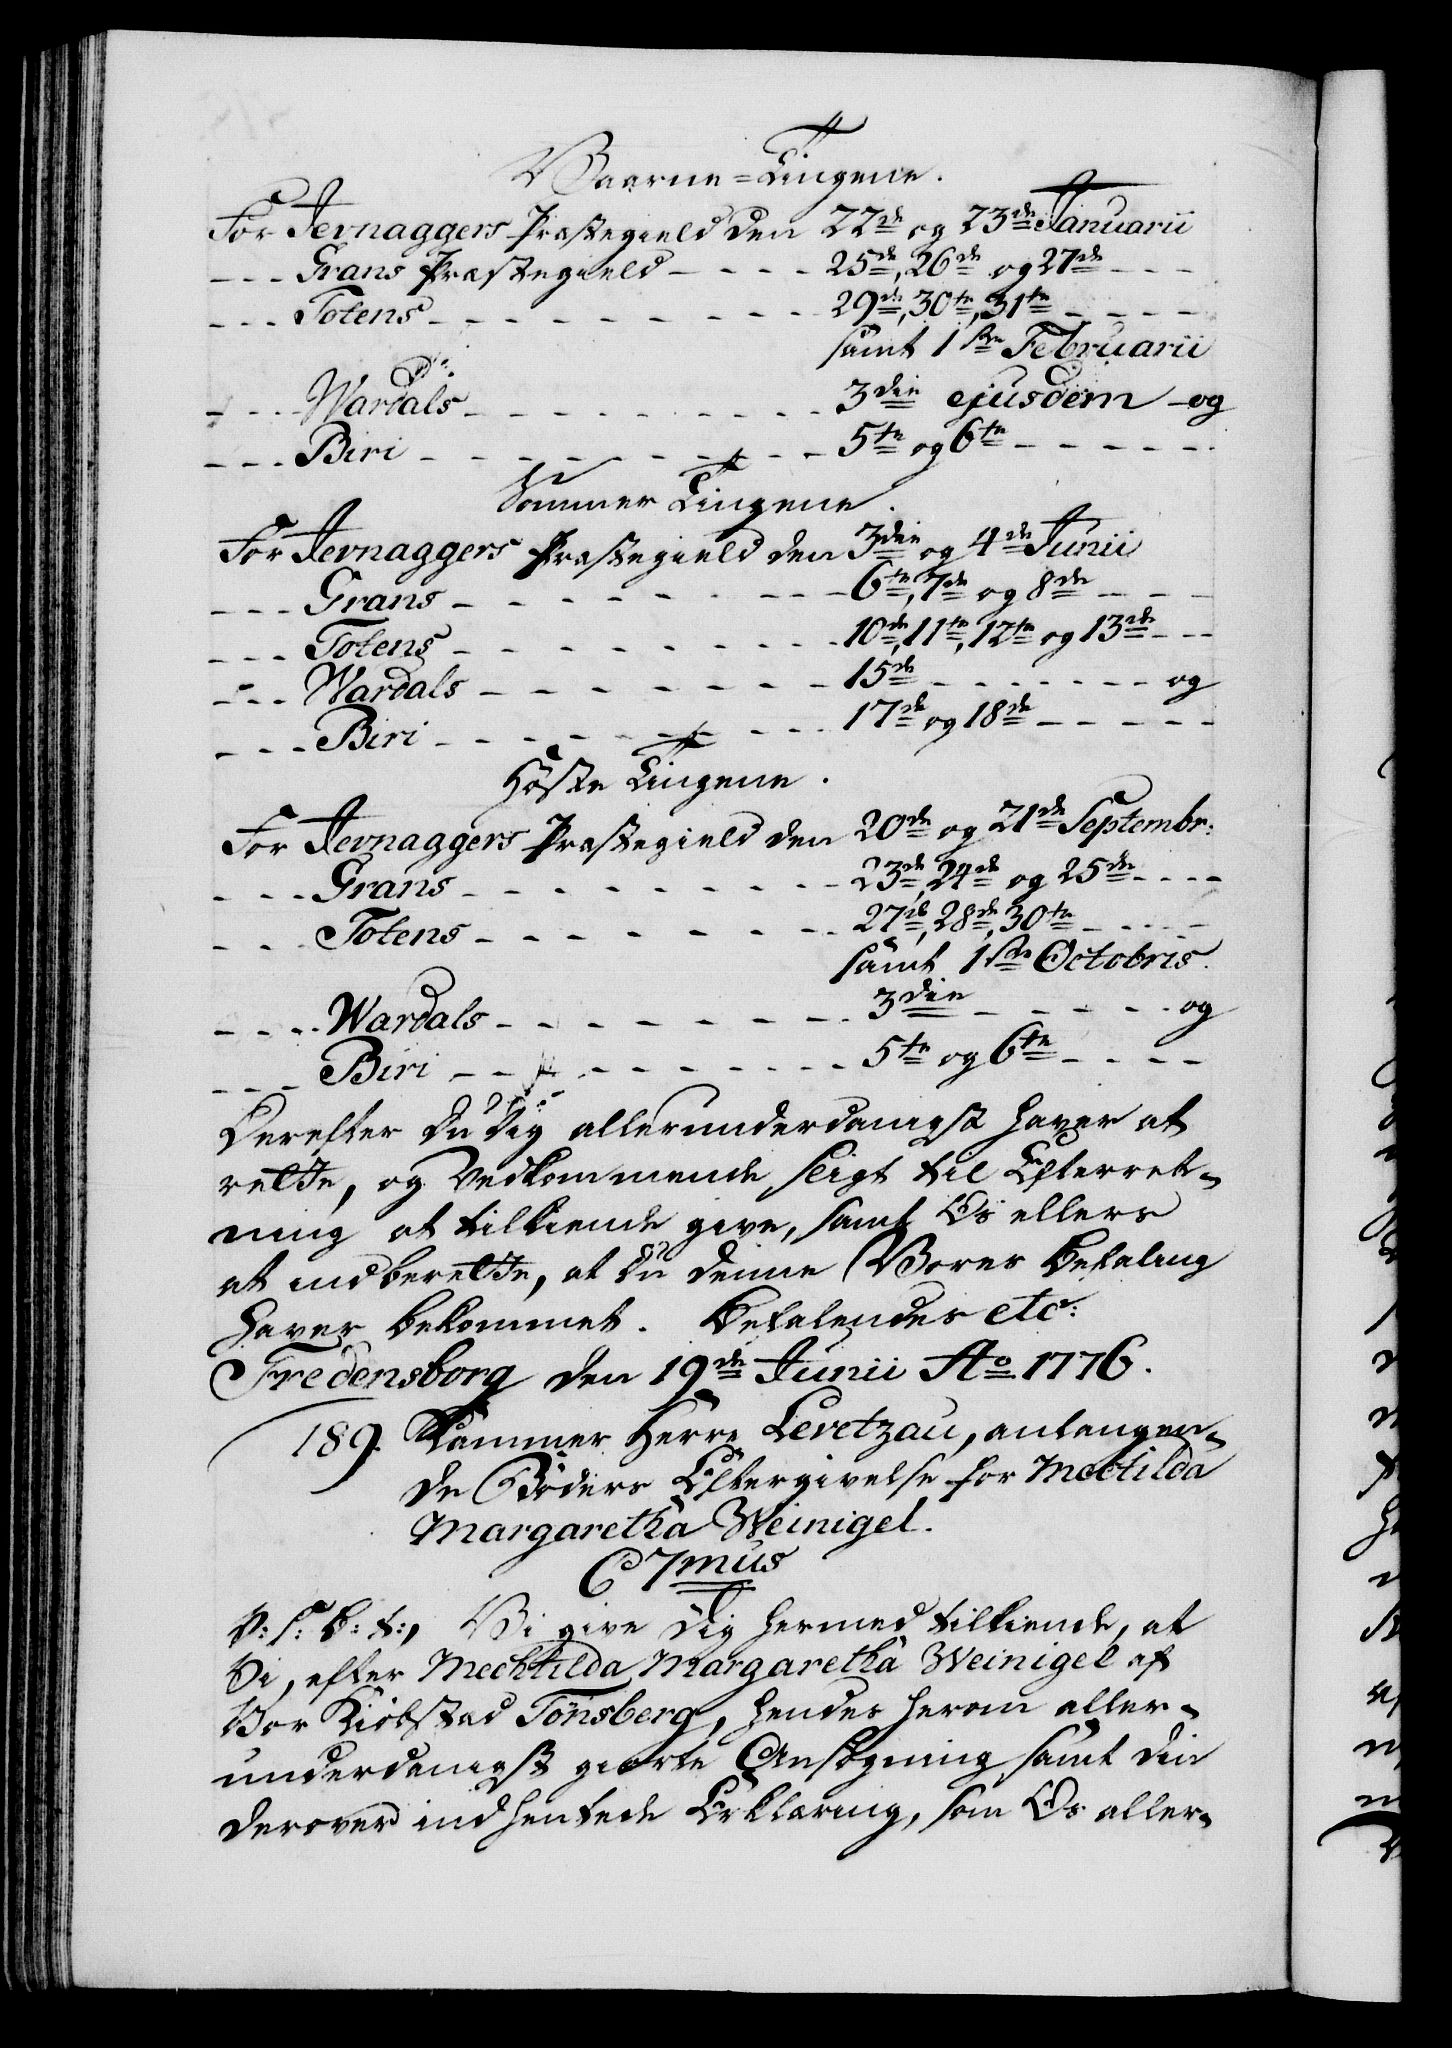 Vaarne-Tingene.
For Jevnaggers Præstegield den 22de og 23de Januarii
--- Grans Præstegield ---- 25de, 26de og 27de ---
--- Totens --------- 29de, 30te, 31te ----
samt 1ste Februarii
--- Wardals -------- 3die ejusdem og
--- Biri --------- 5te og 6te -----
Sommer Tingene.
For Jevnaggers Præstegield den 3die og 4de Junii
--- Grans -------- 6te, 7de og 8de ---
--- Totens -------- 10de, 11te, 12te og 13de --
--- Wardals ------- 15de ------ og
--- Biri -------- 17de og 18de ----
Høste Tingene.
For Jevnaggers Præstegield den 20de og 21de Septembr:
--- Grans -------- 23de, 24de og 25de ---
--- Totens -------- 27de, 28de, 30te ----
samt 1ste Octobris.
--- Wardals ------- 3die ----- og
--- Biri -------- 5te og 6te ----
Derefter Du Dig allerunderdanigst haver at
rette, og Vedkommende sligt til Efterret-
ning at tilkiende give, samt Os ellers
at indberette, at Du denne Vores Befaling
haver bekommet. Befalendes etc:
Fredensborg den 19de Junii Ao 1776.
189. Kammer Herre Levetzau, anlangen-
de Bøders Eftergivelse for Mechtilda
Margaretha Weinigel.
C 7mus
V: S: B: t:, Vi give Dig hermed tilkiende, at
Vi, efter Mechtilda Margaretha Weinigel af
Vor Kiøbstad Tønsberg, hendes herom aller-
underdanigst giorte Ansøgning samt Din
derover indhentede Erklæring, som Os aller-